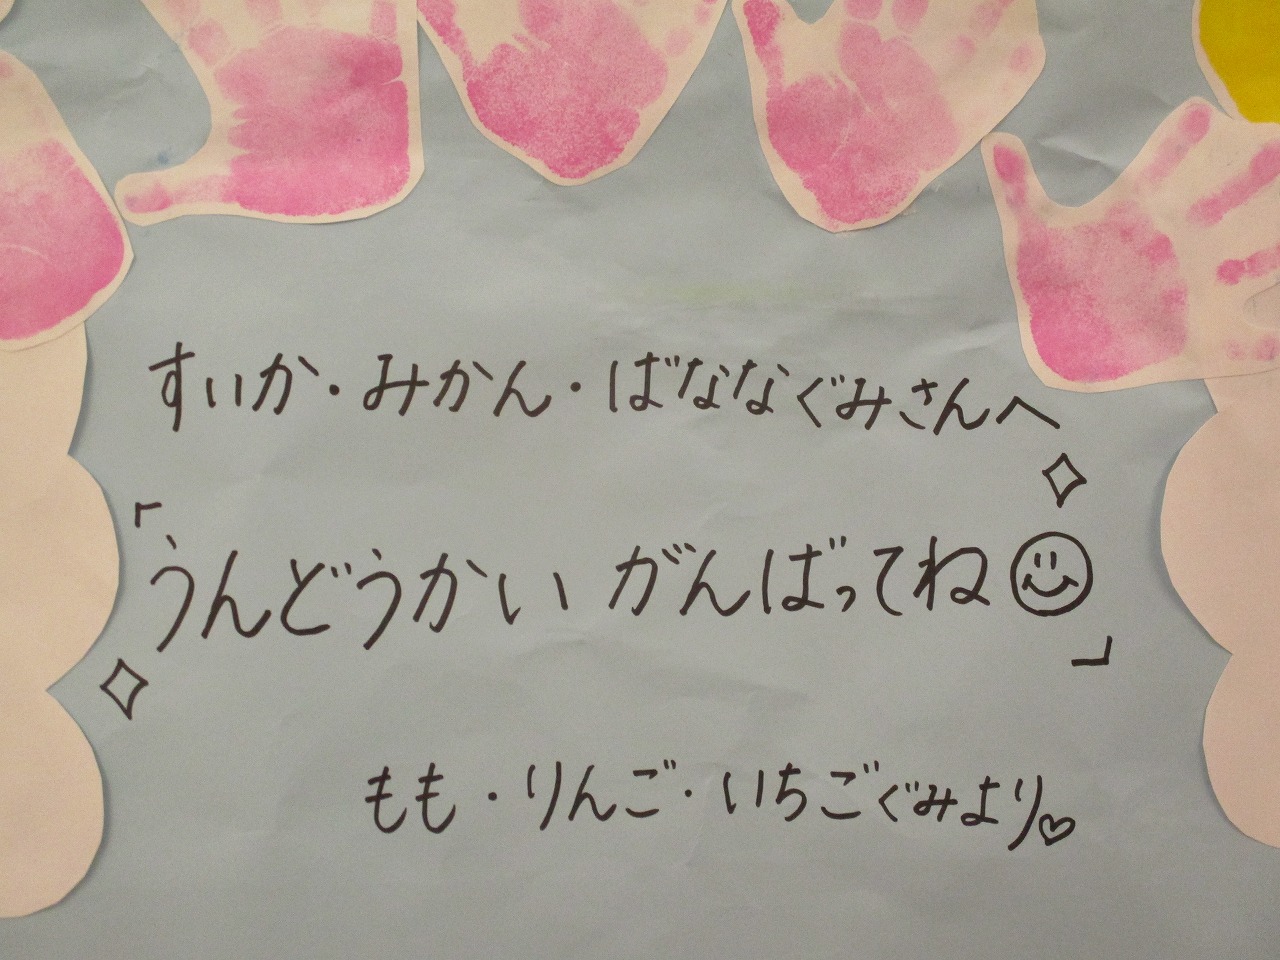 すいか・みかん・ばななぐみさんへ
「うんどうかい がんばってね☺
」
もも・りんご・いちごぐみより♡